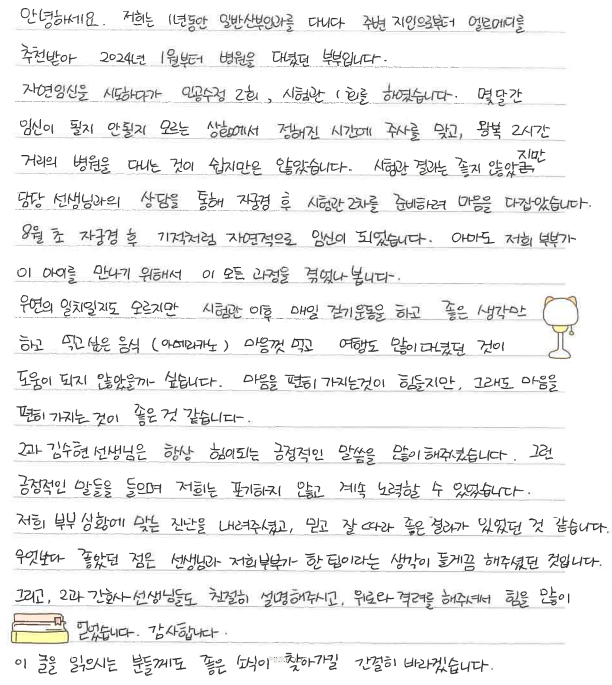 안녕하세요. 저희는 1년동안 일반산부인과를 다니다 주변 지인으로부터 엘르메디를
추천받아 2024년 1월부터 병원을 다녔던 부부입니다.
자연임신을 시도하다가 인공수정 2회, 시험관 1회를 하였습니다. 몇달간
임신이 될지 안될지 모르는 상황에서 정해진 시간에 주사를 맞고, 왕복 2시간
거리의 병원을 다니는 것이 쉽지만은 않았습니다. 시험관 결과는 좋지 않았지만
담당 선생님과의 상담을 통해 자궁경 후 시험관 2차를 준비하려 마음을 다잡았습니다.
8월 초 자궁경 후 기적처럼 자연적으로 임신이 되었습니다. 아마도 저희 부부가
이 아이를 만나기 위해서 이 모든 과정을 겪었나 봅니다.
우연의 일치일지도 모르지만 시험관 이후 매일 걷기운동을 하고 좋은 생각만
하고 먹고싶은 음식 (아메리카노) 마음껏 먹고 여행도 많이 다녔던 것이
도움이 되지 않았을까 싶습니다. 마음을 편히 가지는것이 힘들지만, 그래도 마음을
편히 가지는 것이 좋은 것 같습니다.
2과 김수현 선생님은 항상 힘이되는 긍정적인 말씀을 많이 해주셨습니다. 그런
긍정적인 말들을 들으며 저희는 포기하지 않고 계속 노력할 수 있었습니다.
저희 부부 상황에 맞는 진단을 내려주셨고, 믿고 잘 따라 좋은 결과가 있었던 것 같습니다.
무엇보다 좋았던 점은 선생님과 저희부부가 한 팀이라는 생각이 들게끔 해주셨던 것입니다.
그리고, 2과 간호사 선생님들도 친절히 설명해주시고, 위로와 격려를 해주셔서 힘을 많이
얻었습니다. 감사합니다.
이 글을 읽으시는 분들께도 좋은 소식이 찾아가길 간절히 바라겠습니다.